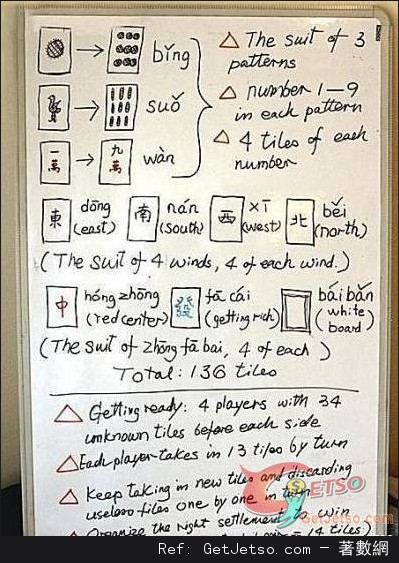 → bǐng
→ suǒ
一萬 → 九萬 wàn
△ The suit of 3
patterns
△ number 1–9
in each pattern
△ 4 tiles of each
number
東 dōng (east) 南 nán (south) 西 xī (west) 北 běi (north)
(The suit of 4 winds, 4 of each wind.)
中 hóng zhōng (red center) 發 fā cái (getting rich) bái bǎn (white board)
(The suit of zhōng fā bai, 4 of each)
Total: 136 tiles
△ Getting ready: 4 players with 34
unknown tiles before each side
△ Each player takes in 13 tiles by turn
△ Keep taking in new tiles and discarding
useless tiles one by one in turn
Organize the right settlement to win
= 14 tiles)
GETSO
GetJetso.com
Ref: GetJetso.com – 著數網